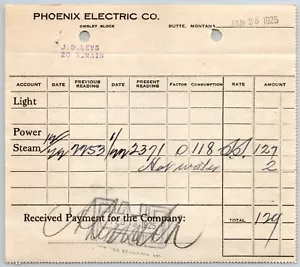 PHOENIX ELECTRIC CO.
OWSLEY BLOCK BUTTE, MONTANA, JAN 26 1925
J.D. LEYS
20 N. MAIN
ACCOUNT DATE PREVIOUS READING DATE PRESENT READING FACTOR CONSUMPTION RATE AMOUNT
Light
Power
Steam 7953 2371 0 118 127
Hot water 2
Received Payment for the Company: TOTAL 129